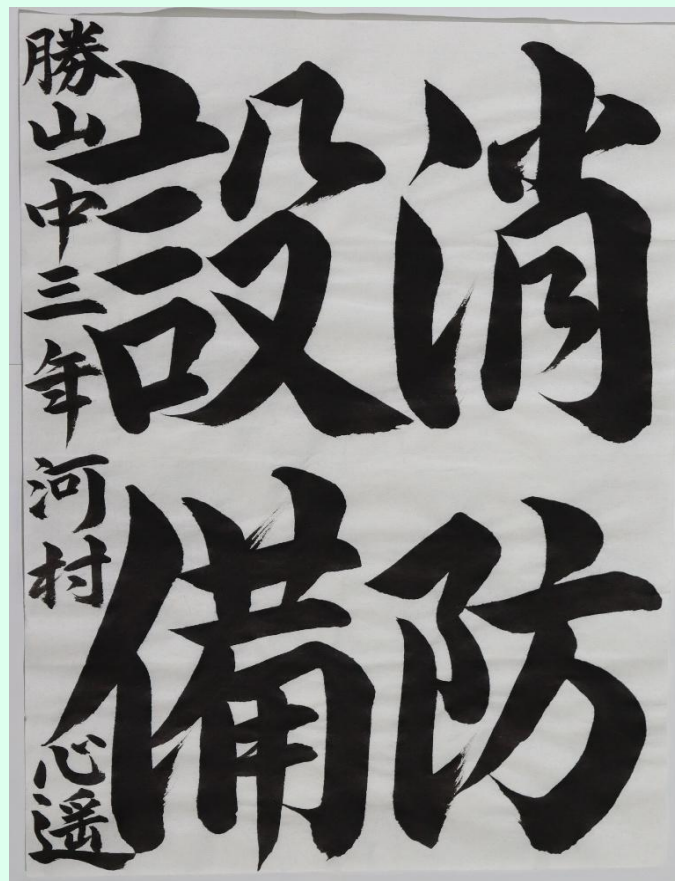 消防
設備
勝山中三年河村心遥